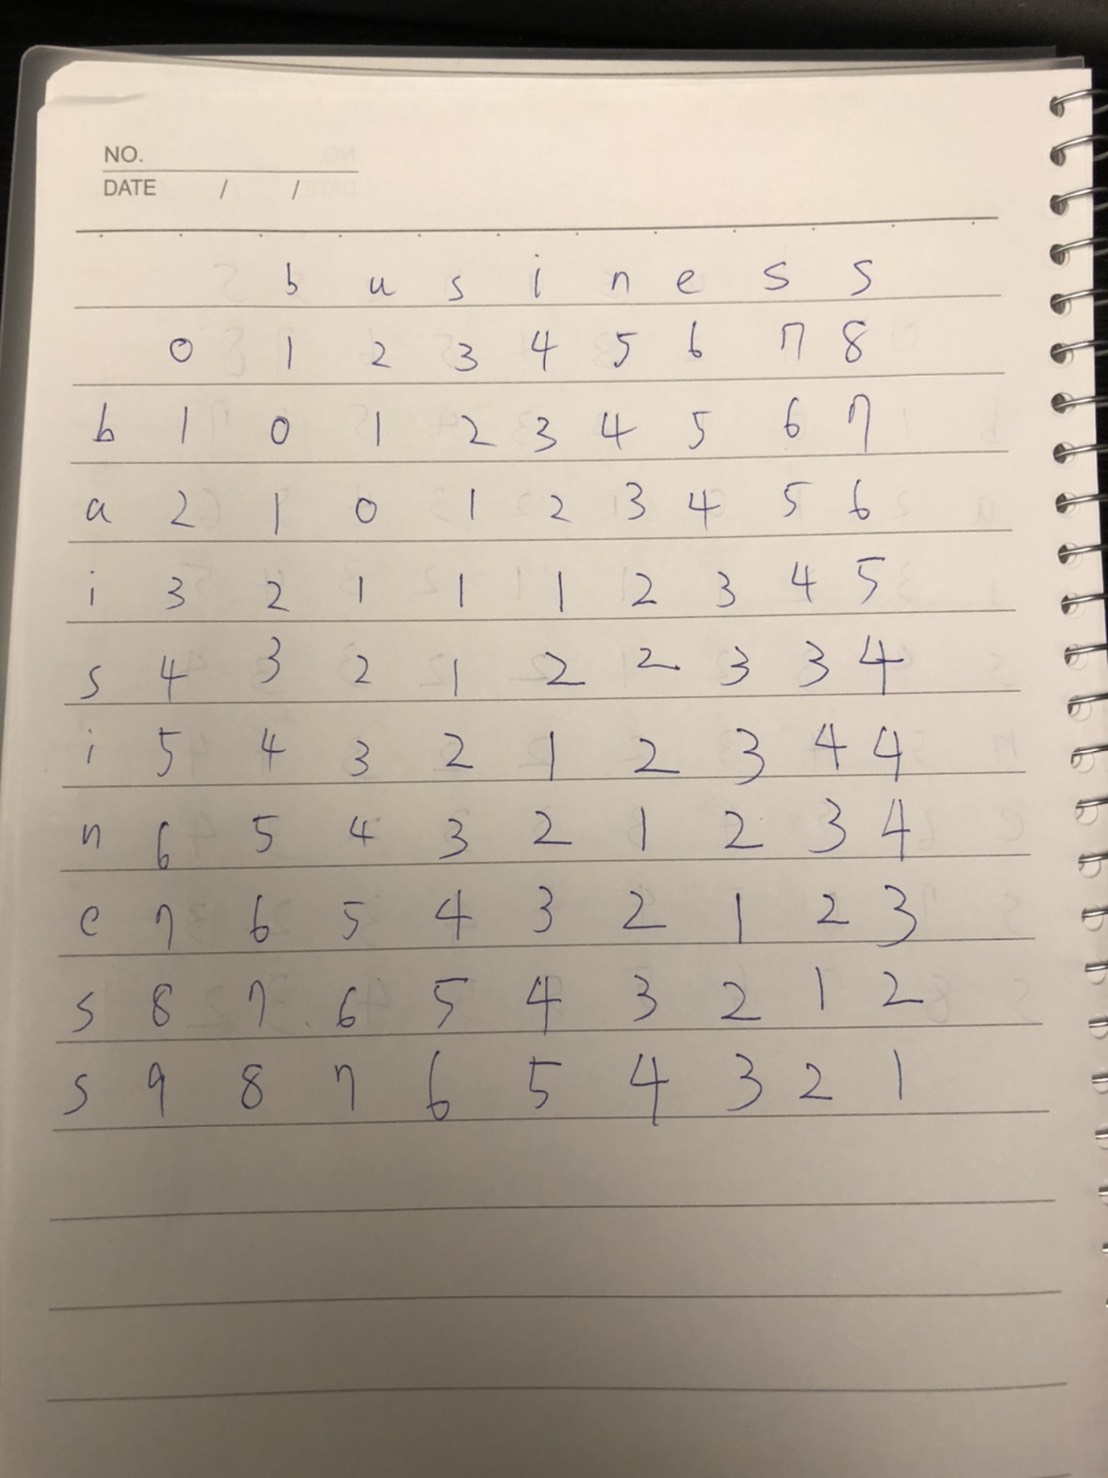 NO.
DATE / /
b u s i n e s s
0 1 2 3 4 5 6 7 8
b 1 0 1 2 3 4 5 6 7
a 2 1 0 1 2 3 4 5 6
i 3 2 1 1 1 2 3 4 5
s 4 3 2 1 2 2 3 3 4
i 5 4 3 2 1 2 3 4 4
n 6 5 4 3 2 1 2 3 4
e 7 6 5 4 3 2 1 2 3
s 8 7 6 5 4 3 2 1 2
s 9 8 7 6 5 4 3 2 1